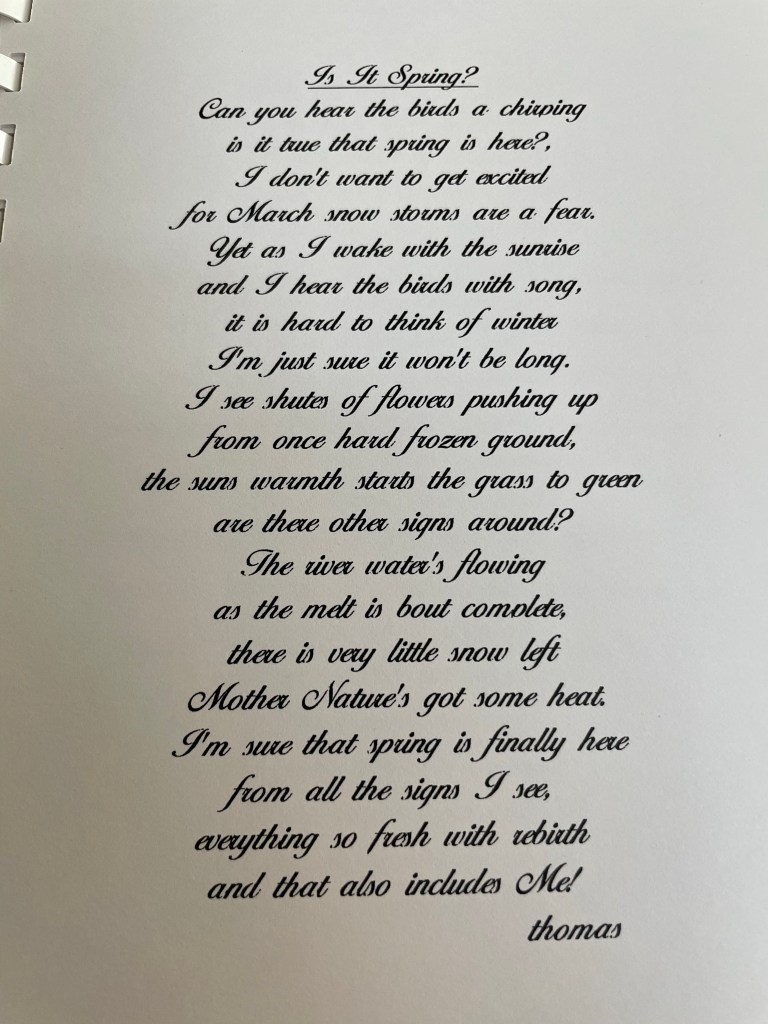 Is It Spring?
Can you hear the birds a chirping
is it true that spring is here?,
I don't want to get excited
for March snow storms are a fear.
Yet as I wake with the sunrise
and I hear the birds with song,
it is hard to think of winter
I'm just sure it won't be long.
I see shutes of flowers pushing up
from once hard frozen ground,
the suns warmth starts the grass to green
are there other signs around?
The river water's flowing
as the melt is bout complete,
there is very little snow left
Mother Nature's got some heat.
I'm sure that spring is finally here
from all the signs I see,
everything so fresh with rebirth
and that also includes Me!
thomas